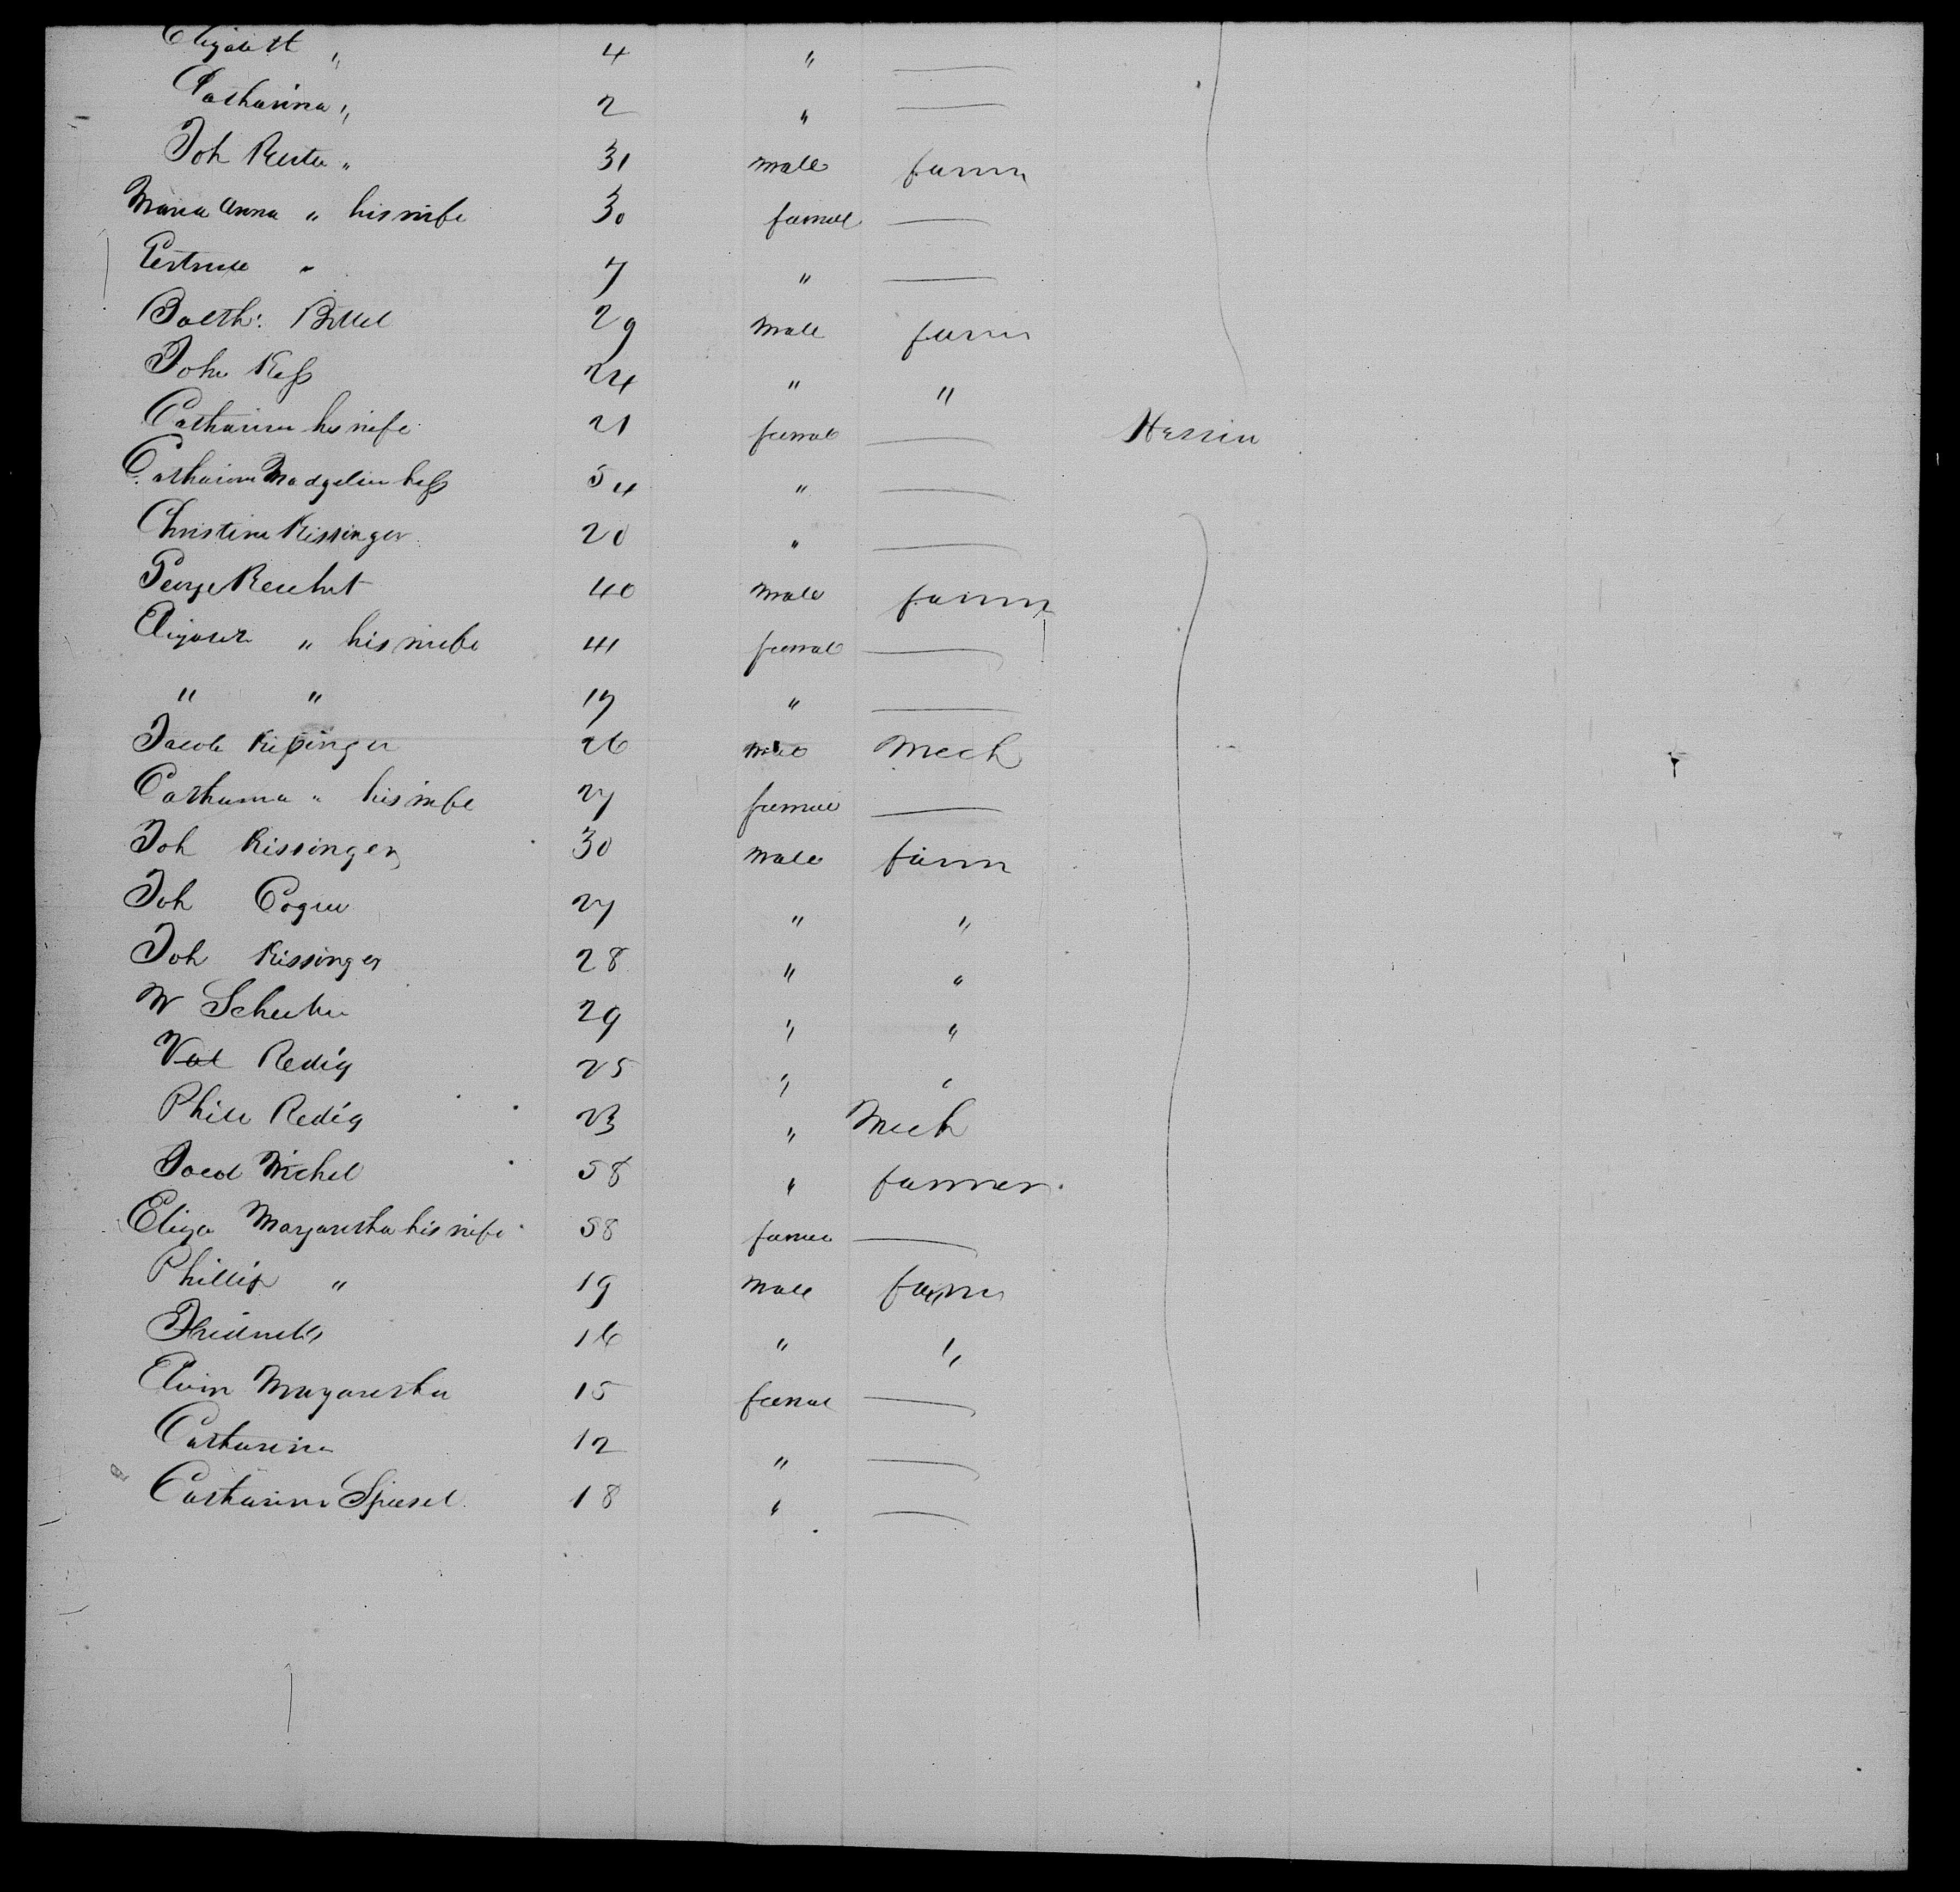 Elizabeth " 4 "
Catharina " 2 "
Joh Reuter " 31 male farm
Maria Anna " his wife 30 femal
Gertrude " 7 "
Balth: 29 Male farm
John Keß 24 " "
Catharina his wife 21 femal Hessin
Catharina Madgelin heß 54 "
Christina Kissinger 20 "
George 40 Male farm
" his wife 41 femal
" " 17 "
Jacob Kißinger 26 Male Mech
Catharina " his wife 27 female
Joh Kissinger 30 Male farm
Joh 27 " "
Joh Kissinger 28 " "
W 29 " "
Val Redig 25 " "
Phill Redig 23 " Mech
Michel 58 " farmer
Eliza Margaretha his wife 58 female
Phillip " 19 Male farm
16 " "
Margaretha 15 femal
Catharina 12 "
Catharina Spiesel 18 "